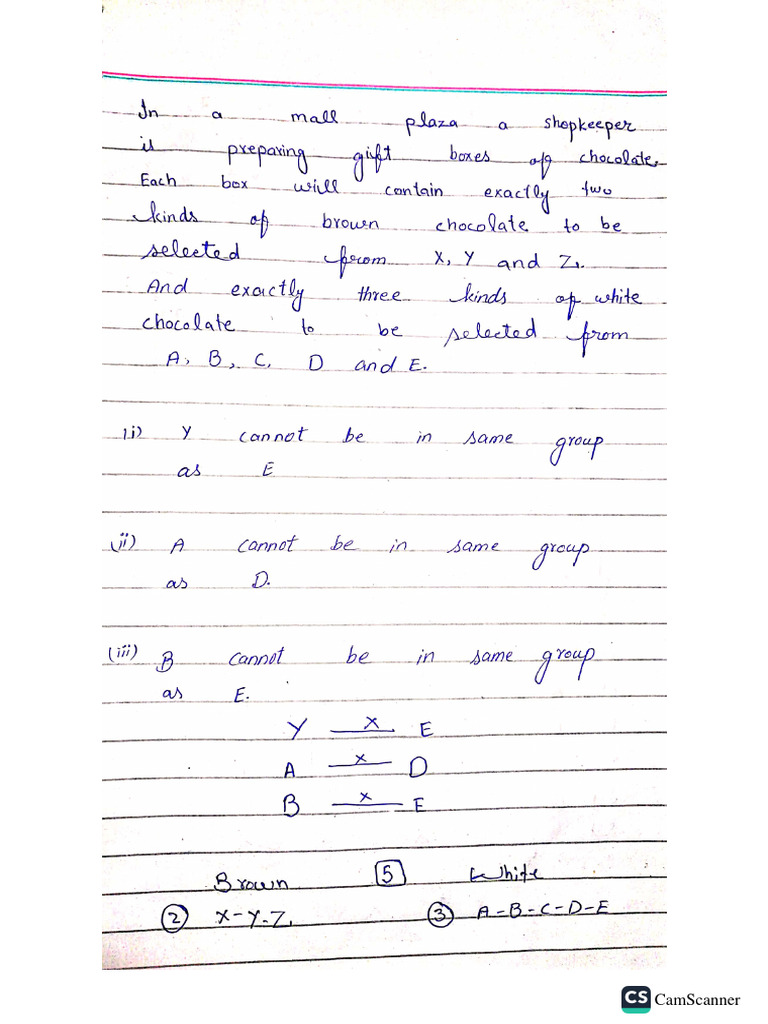 In a mall plaza a shopkeeper
is preparing gift boxes of chocolate.
Each box will contain exactly two
kinds of brown chocolate to be
selected from X, Y and Z.
And exactly three kinds of white
chocolate to be selected from
A, B, C, D and E.
1.i) Y cannot be in same group
as E
(ii) A cannot be in same group
as D.
(iii) B cannot be in same group
as E.
Y x E
A x D
B x E
Brown 5 White
2 X-Y-Z. 3 A-B-C-D-E
CS CamScanner